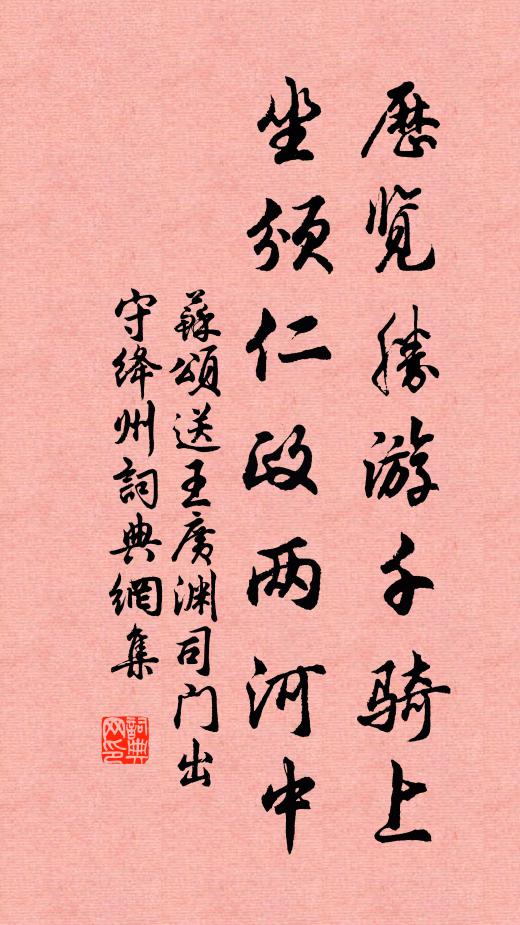 歷覽勝游千騎上
坐頒仁政两河中
蘇頌送王廣渊司门出
守绛州詞典網集
詞典網印